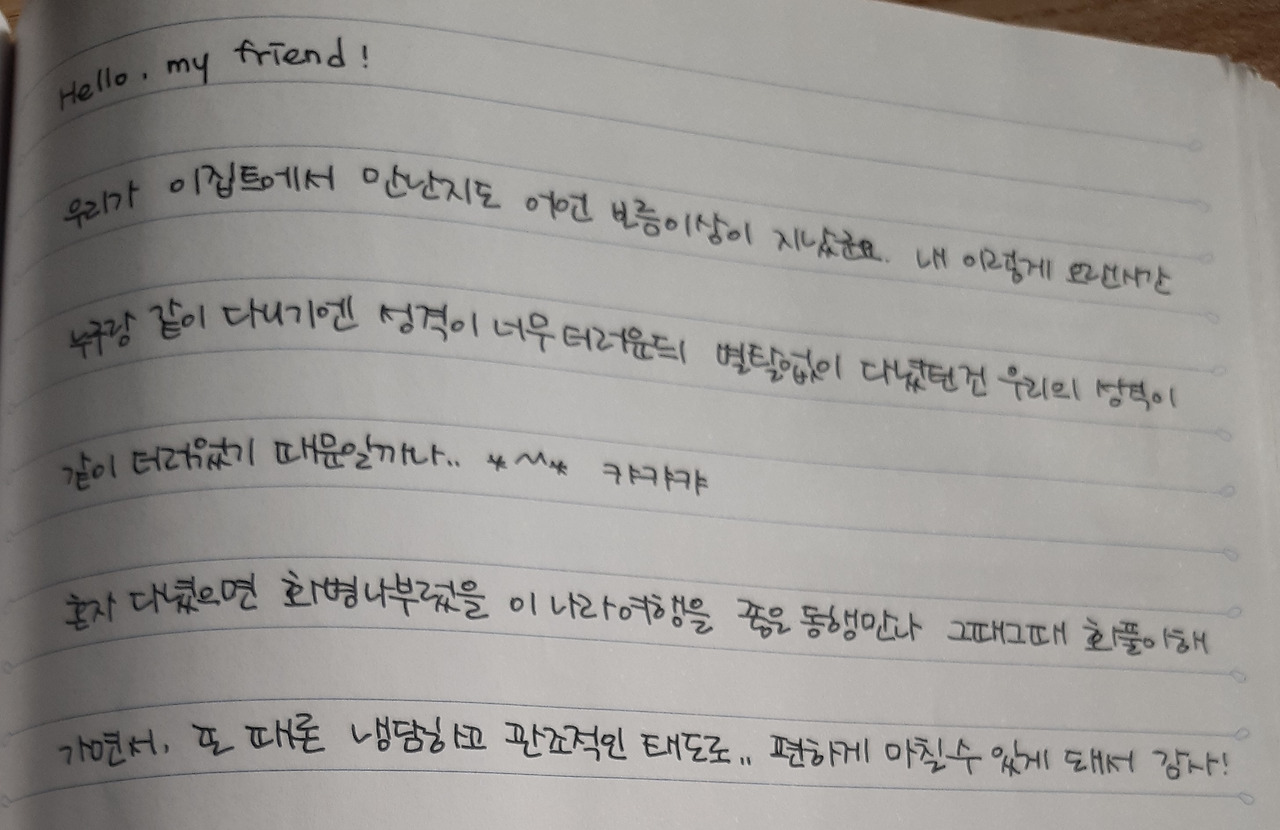 Hello, my friend!
우리가 이집트에서 만난지도 어언 보름이상이 지났군요. 내 이렇게 오랜시간
누구랑 같이 다니기엔 성격이 너무 더러운듸 별탈없이 다녔던건 우리의 성격이
같이 더러웠기 때문일까나.. *^^* 캬캬캬
혼자 다녔으면 화병나부렀을 이 나라여행을 좋은 동행만나 그때그때 화풀이해
가면서, 또 때론 냉담하고 관조적인 태도로.. 편하게 마칠수 있게 돼서 감사!